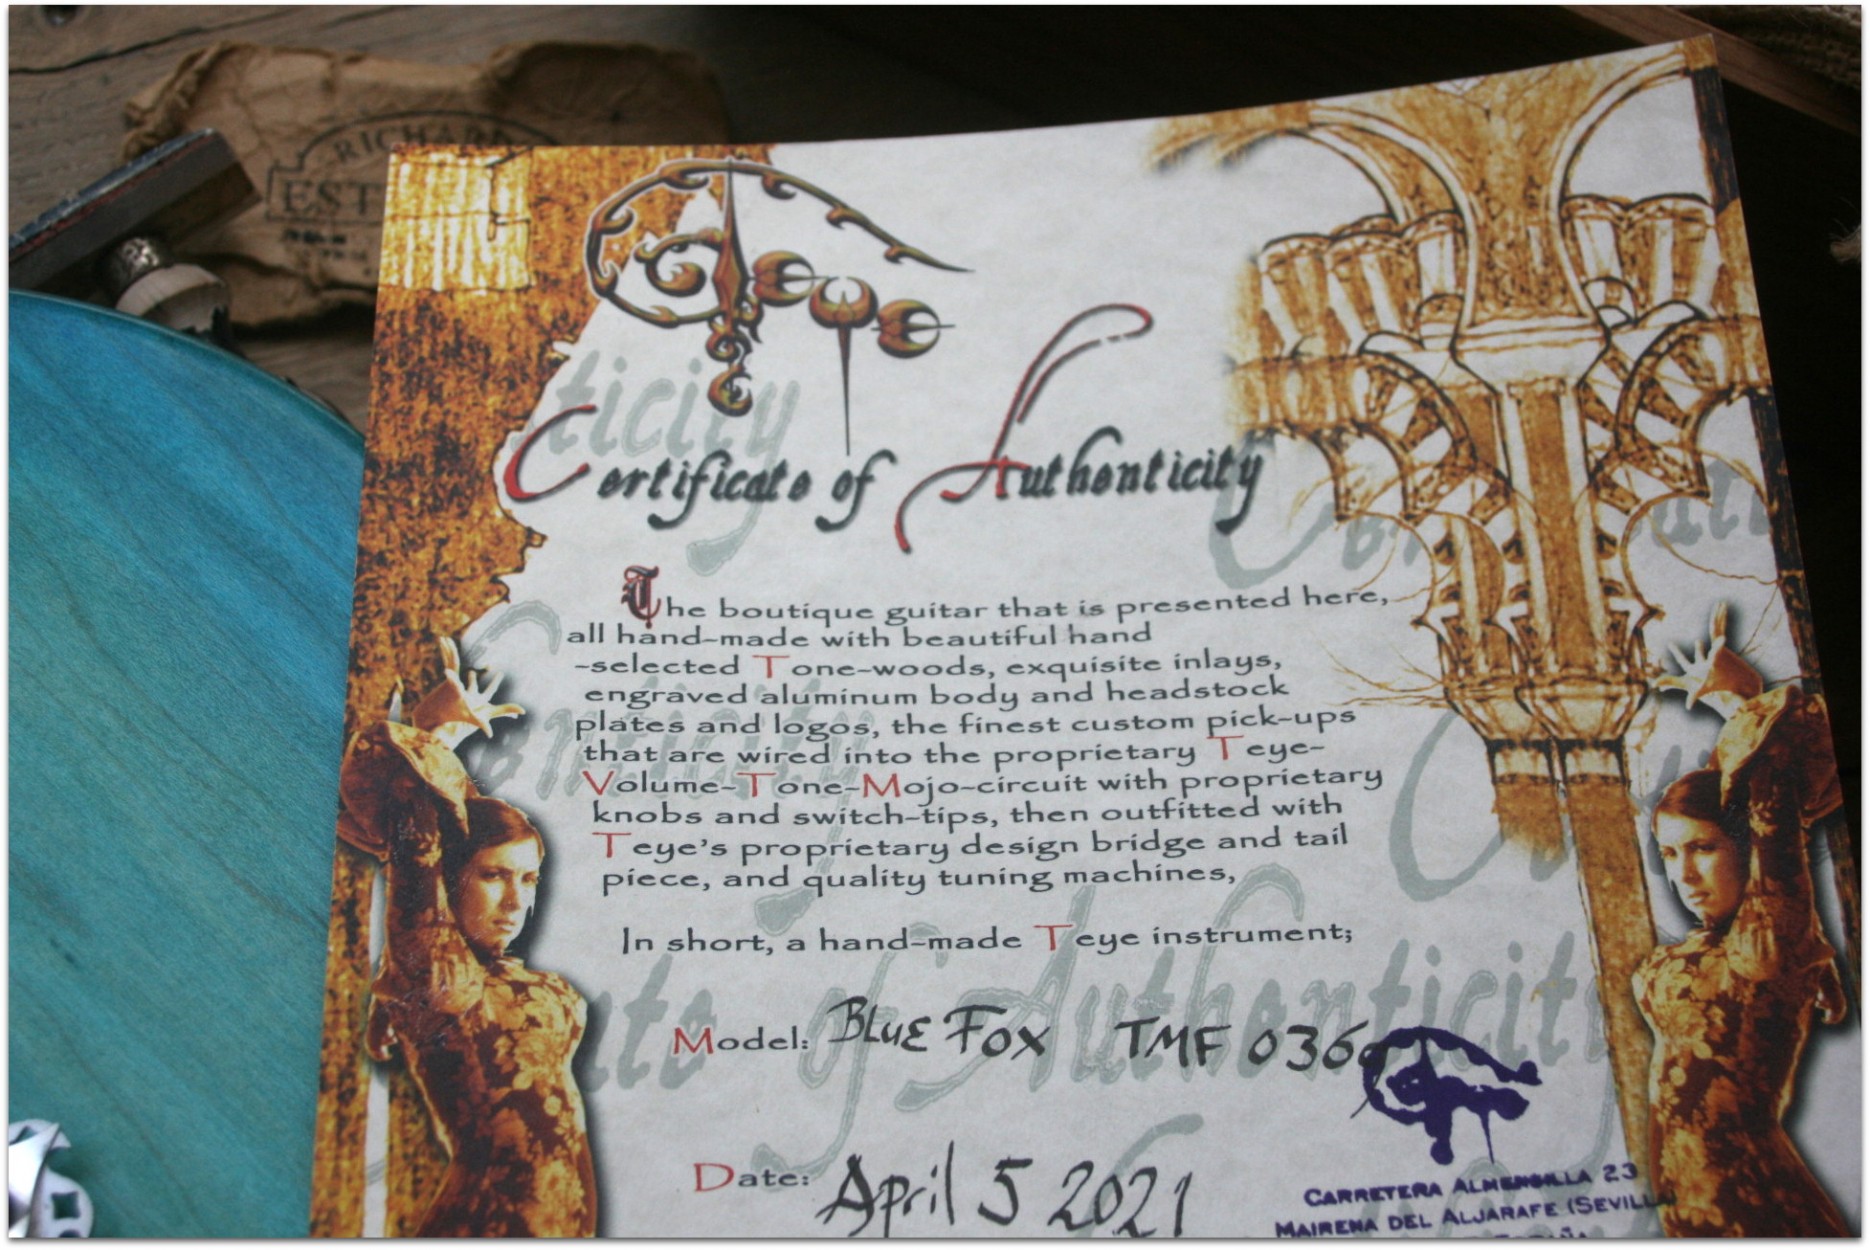 RICHARD
EST
Teye
Certificate of Authenticity
The boutique guitar that is presented here,
all hand-made with beautiful hand
-selected Tone-woods, exquisite inlays,
engraved aluminum body and headstock
plates and logos, the finest custom pick-ups
that are wired into the proprietary Teye-
Volume-Tone-Mojo-circuit with proprietary
knobs and switch-tips, then outfitted with
Teye's proprietary design bridge and tail
piece, and quality tuning machines,
In short, a hand-made Teye instrument;
Model: BLUE FOX TMF 036
Date: April 5 2021
CARRETERA ALMENSILLA 23
MAIRENA DEL ALJARAFE (SEVILLA